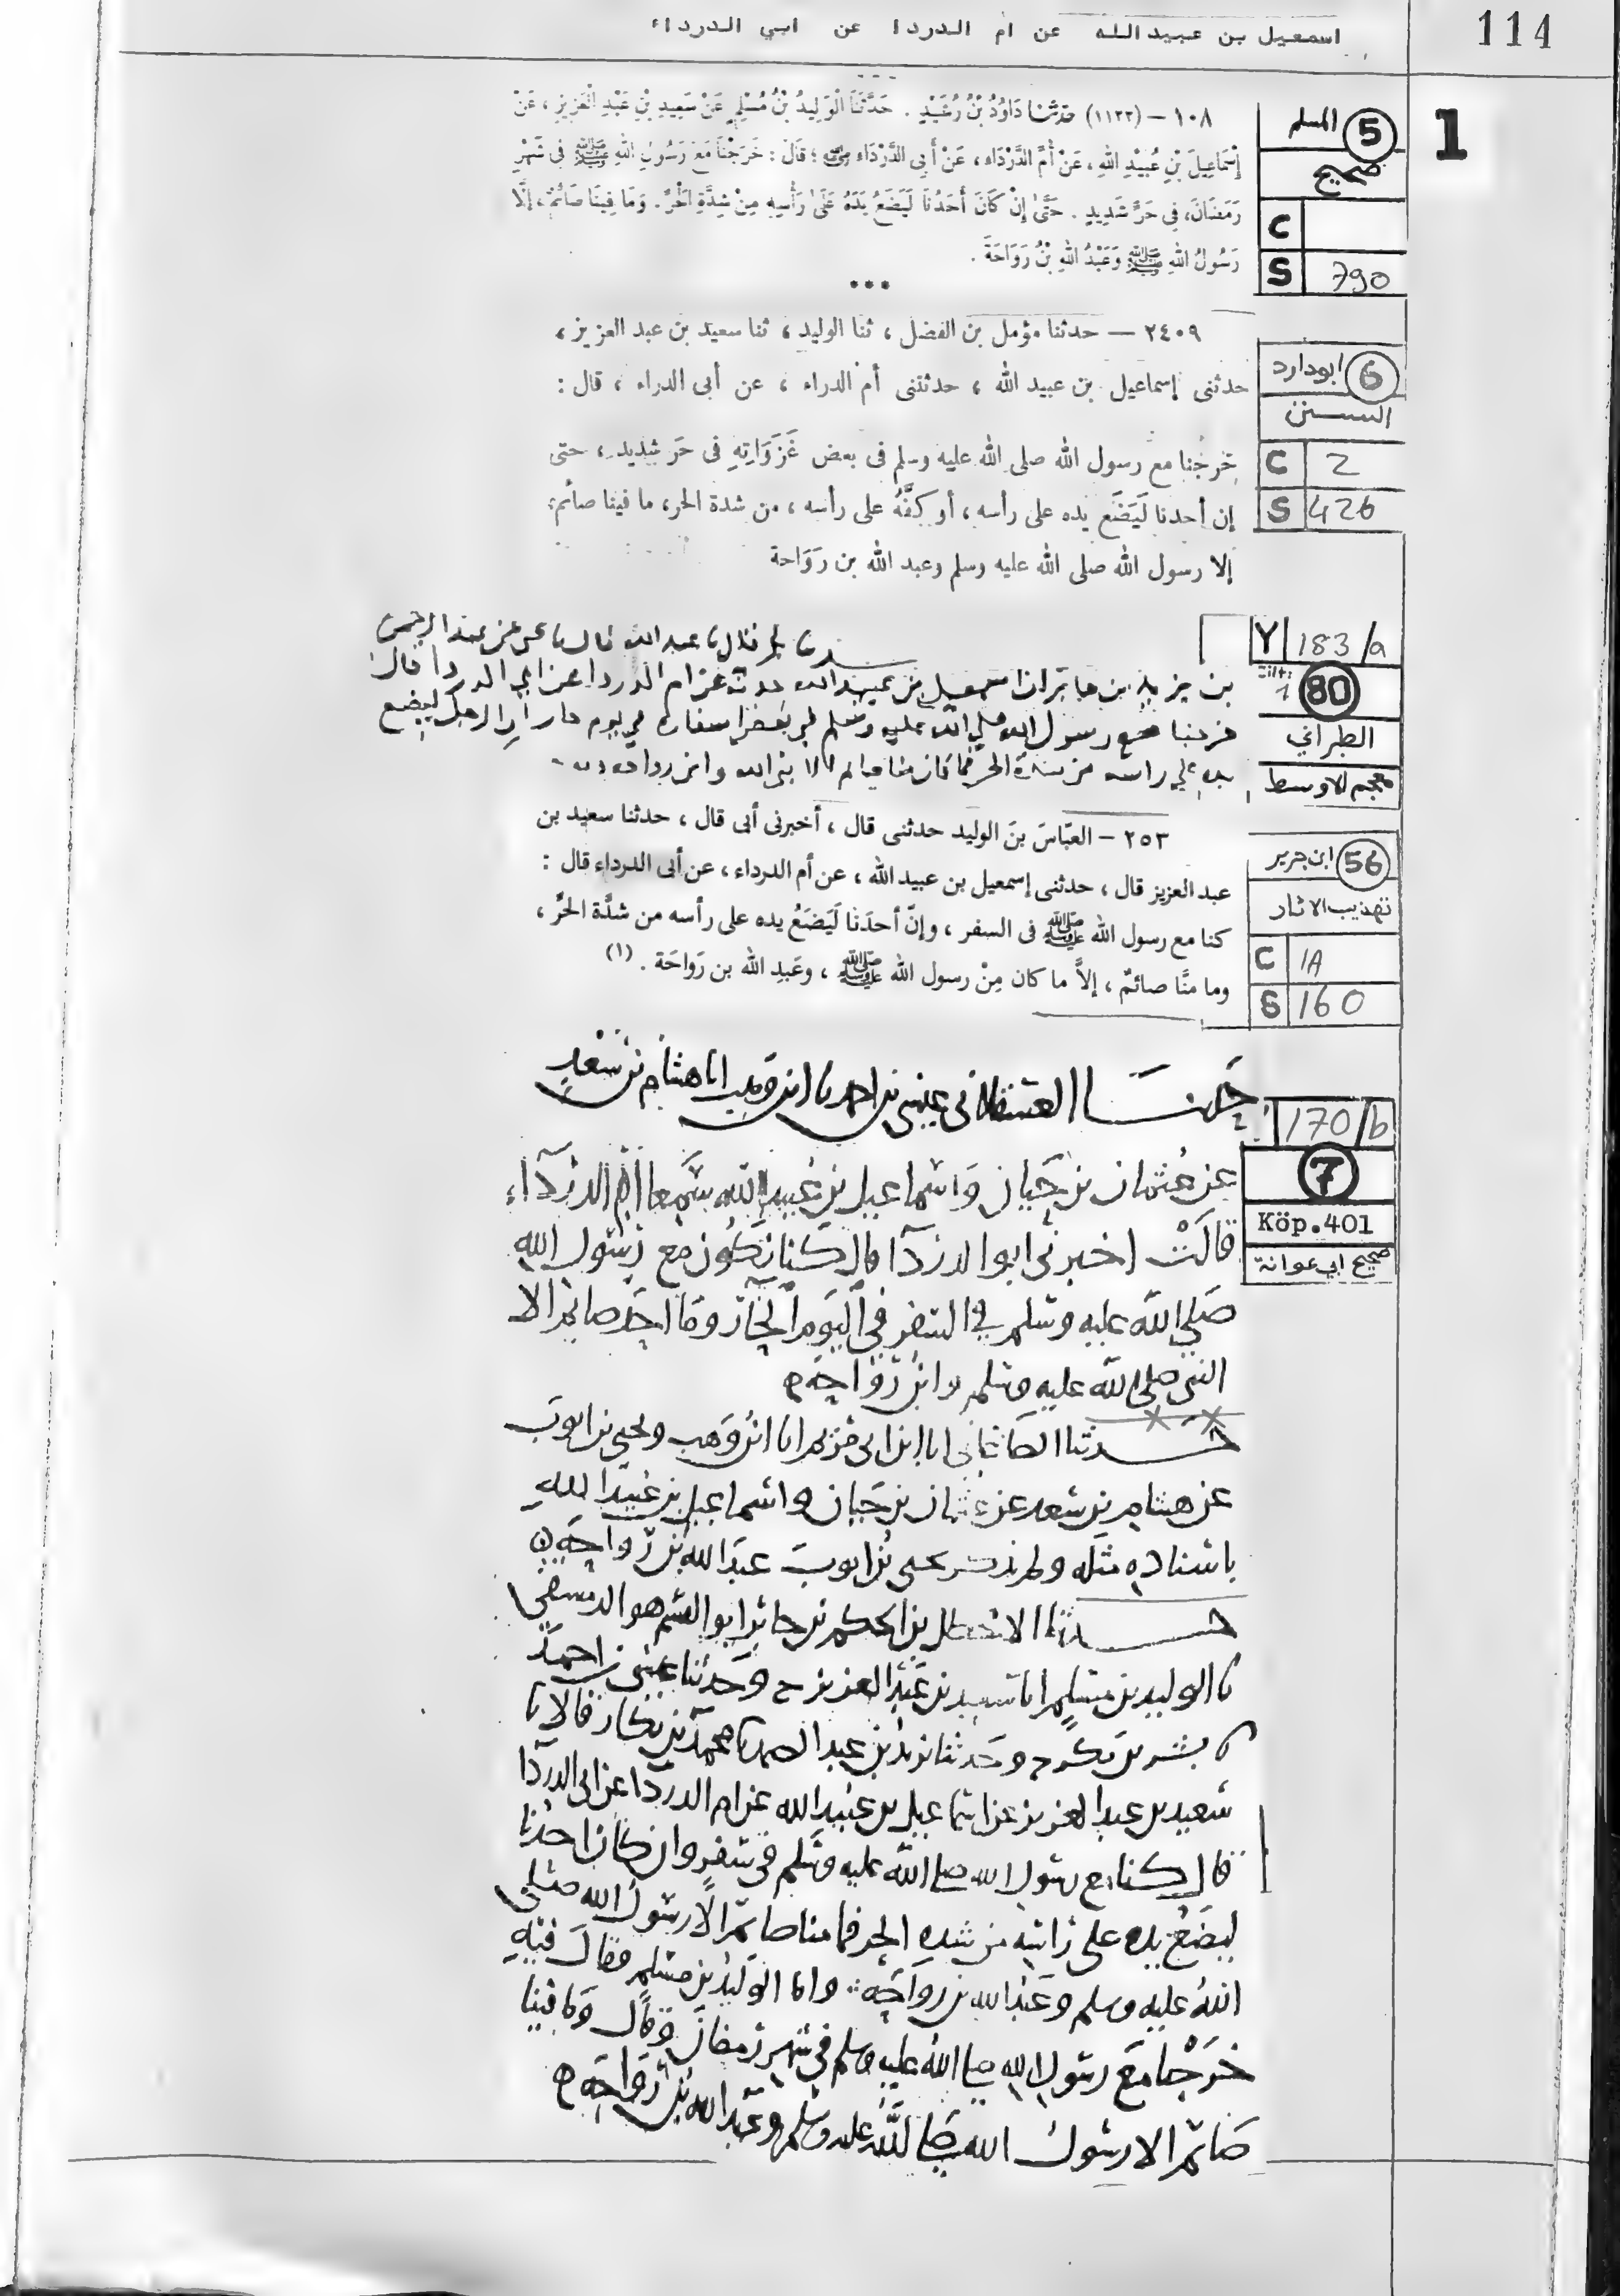 114
اسمعيل بن عبيد الله عن ام الدردا عن ابي الدرداء
1
5 المسلم
صحيح
C
S 790
١٠٨ – (١١٢٢) حدثنا دَاوُدُ بْنُ رُشَيْدٍ . حَدَّثَنَا الْوَلِيدُ بْنُ مُسْلِمٍ عَنْ سَعِيدِ بْنِ عَبْدِ الْعَزِيزِ ، عَنْ
إِسْمَاعِيلَ بْنِ عُبَيْدِ اللهِ ، عَنْ أُمِّ الدَّرْدَاءِ ، عَنْ أَبِى الدَّرْدَاءِ ؛ قَالَ : خَرَجْنَا مَعَ رَسُولِ اللهِ ﷺ فِى شَهْرِ
رَمَضَانَ، فِى حَرٍّ شَدِيدٍ . حَتَّىٰ إِنْ كَانَ أَحَدُنَا لَيَضَعُ يَدَهُ عَلَىٰ رَأْسِهِ مِنْ شِدَّةِ الْحَرِّ. وَمَا فِينَا صَائِمٌ، إِلَّا
رَسُولُ اللهِ ﷺ وَعَبْدُ اللهِ بْنُ رَوَاحَةَ .
***
6 ابودارد
السنن
C 2
S 426
٢٤٠٩ — حدثنا مؤمل بن الفضل ، ثنا الوليد ، ثنا سعيد بن عبد العزيز ،
حدثنى إسماعيل بن عبيد الله ، حدثتنى أم الدراء ، عن أبى الدراء ، قال :
خرجنا مع رسول الله صلى الله عليه وسلم فى بعض غَزَوَاتِهِ فى حَر شديد ، حتى
إن أحدنا لَيَضَع يده على رأسه ، أو كفَّهُ على رأسه ، من شدة الحر، ما فينا صائم؛
إلا رسول الله صلى الله عليه وسلم وعبد الله بن رَوَاحة
Y 183/a
80
الطبراني
معجم الاوسط
عبد الله قال عبد الرحمن
بن يزيد بن جابر ان اسمعيل بن عبيد الله حدثه عن ام الدردا عن ابي الدردا قال
خرجنا مع رسول الله صلي الله عليه وسلم في بعض اسفاره في يوم حار الرجل ليضع
يده علي راسه من شدة الحر فما كان منا صايم الا نبي الله وابن رواحه
56 ابن جرير
تهذيب الاثار
C 1A
S 160
٢٥٣ – العبّاسَ بنَ الوليد حدثنى قال ، أخبرنى أبى قال ، حدثنا سعيد بن
عبد العزيز قال ، حدثنى إسمعيل بن عبيد الله ، عن أم الدرداء ، عن أبى الدرداء قال :
كنا مع رسول الله ﷺ فى السفر ، وإنّ أحدَنَا لَيَضَعُ يده على رأسه من شدَّة الحرِّ ،
وما منَّا صائمٌ ، إلاَّ ما كان مِنْ رسول الله ﷺ ، وعَبدِ الله بن رَواحَة . (١)
170/b
7
Köp.401
صحيح ابي عوانة
حدثنا العسقلاني عيسى بن احمد نا ابن وهب انا هشام بن سعد
عن عثمان بن حيان واسماعيل بن عبيد الله سمعا ام الدرداء
قالت اخبرني ابو الدردا قال كنا نكون مع رسول الله
صلى الله عليه وسلم في السفر في اليوم الحار وما احد صائم الا
النبي صلى الله عليه وسلم وابن رواحة
حدثنا الصاغاني انا ابن ابي مريم انا ابن وهب ويحيى بن ايوب
عن هشام بن سعد عن عثمان بن حيان واسماعيل بن عبيد الله
باسناده مثله ولم يذكر يحيى بن ايوب عبد الله بن رواحة
حدثنا الاخطل بن الحكم بن جابر ابو القسم هو الدمشقي
نا الوليد بن مسلم انا سعيد بن عبد العزيز ح وحدثنا عيسى بن احمد
نا بشر بن بكر ح وحدثنا يزيد بن عبد الصمد نا محمد بن بكار قالا نا
سعيد بن عبد العزيز عن اسماعيل بن عبيد الله عن ام الدردا عن ابي الدردا
قال كنا مع رسول الله صلى الله عليه وسلم في سفر وان كان احدنا
ليضع يده على راسه من شدة الحر فما منا صائم الا رسول الله صلى
الله عليه وسلم وعبد الله بن رواحة واما الوليد بن مسلم فقال فيه
خرجنا مع رسول الله صلى الله عليه وسلم في شهر رمضان وقال وما فينا
صائم الا رسول الله صلى الله عليه وسلم وعبد الله بن رواحة